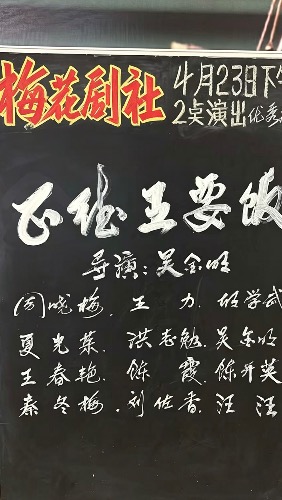 梅花剧社
4月23日下午
2点演出优秀
正德王要饭
导演:吴金明
周晓梅.王 力.胡学武
夏光荣.洪志勉.吴金明
王春艳.陈 霞.陈开英
秦冬梅.刘佐香.汪 汪